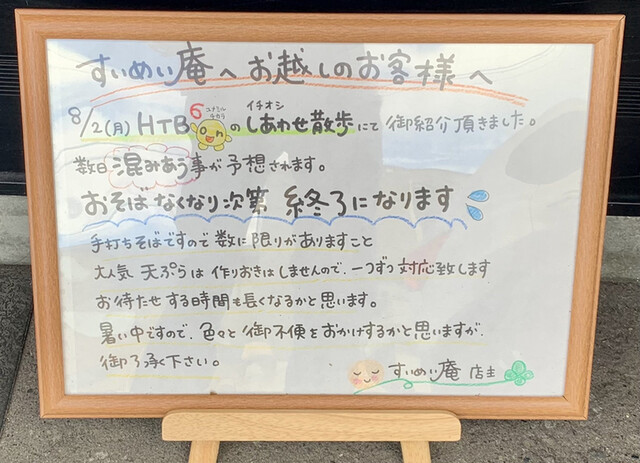 すいめい庵へお越しのお客様へ
8/2(月) HTB 6 ユメミル チカラ onのイチオシしあわせ散歩にて御紹介頂きました。
数日混みあう事が予想されます。
おそばなくなり次第 終了になります
手打ちそばですので数に限りがありますこと
大人気 天ぷらは作りおきはしませんので、一つずつ対応致します
お待たせする時間も長くなるかと思います。
暑い中ですので、色々と御不便をおかけするかと思いますが、
御了承下さい。
すいめい庵 店主